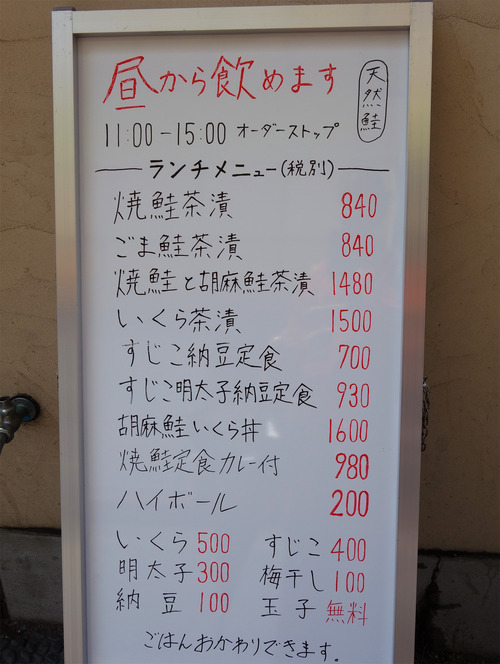 昼から飲めます
天然鮭
11:00-15:00 オーダーストップ
ランチメニュー(税別)
焼鮭茶漬 840
ごま鮭茶漬 840
焼鮭と胡麻鮭茶漬 1480
いくら茶漬 1500
すじこ納豆定食 700
すじこ明太子納豆定食 930
胡麻鮭いくら丼 1600
焼鮭定食カレー付 980
ハイボール 200
いくら 500 すじこ 400
明太子 300 梅干し 100
納豆 100 玉子 無料
ごはんおかわりできます.